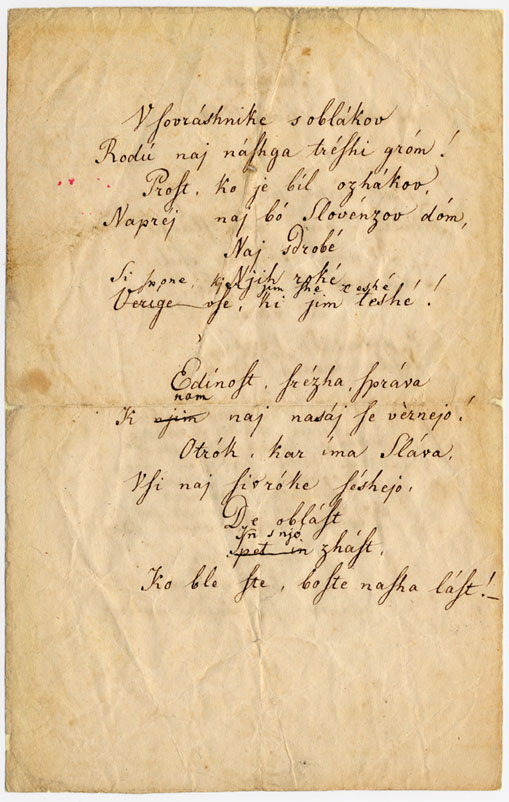 V ſovráshnike s oblákov
Rodú naj náſhga tréſhi gróm!
Prost, ko je bíl ozhákov,
Napréj naj bó Slovénzov dóm,
Naj sdrobé
Njih roké
Si spone, ki jim ſhé teshé
Verige vſe, ki jim teshé!
Edínoſt, ſrézha, ſpráva
nam
K njim naj nasáj ſe vèrnejo!
Otrók, kar íma Sláva,
Vſi naj ſi v róke ſéshejo,
De obláſt
In s njo
ſpet in zháſt,
Ko ble ſte, boſte naſha láſt!